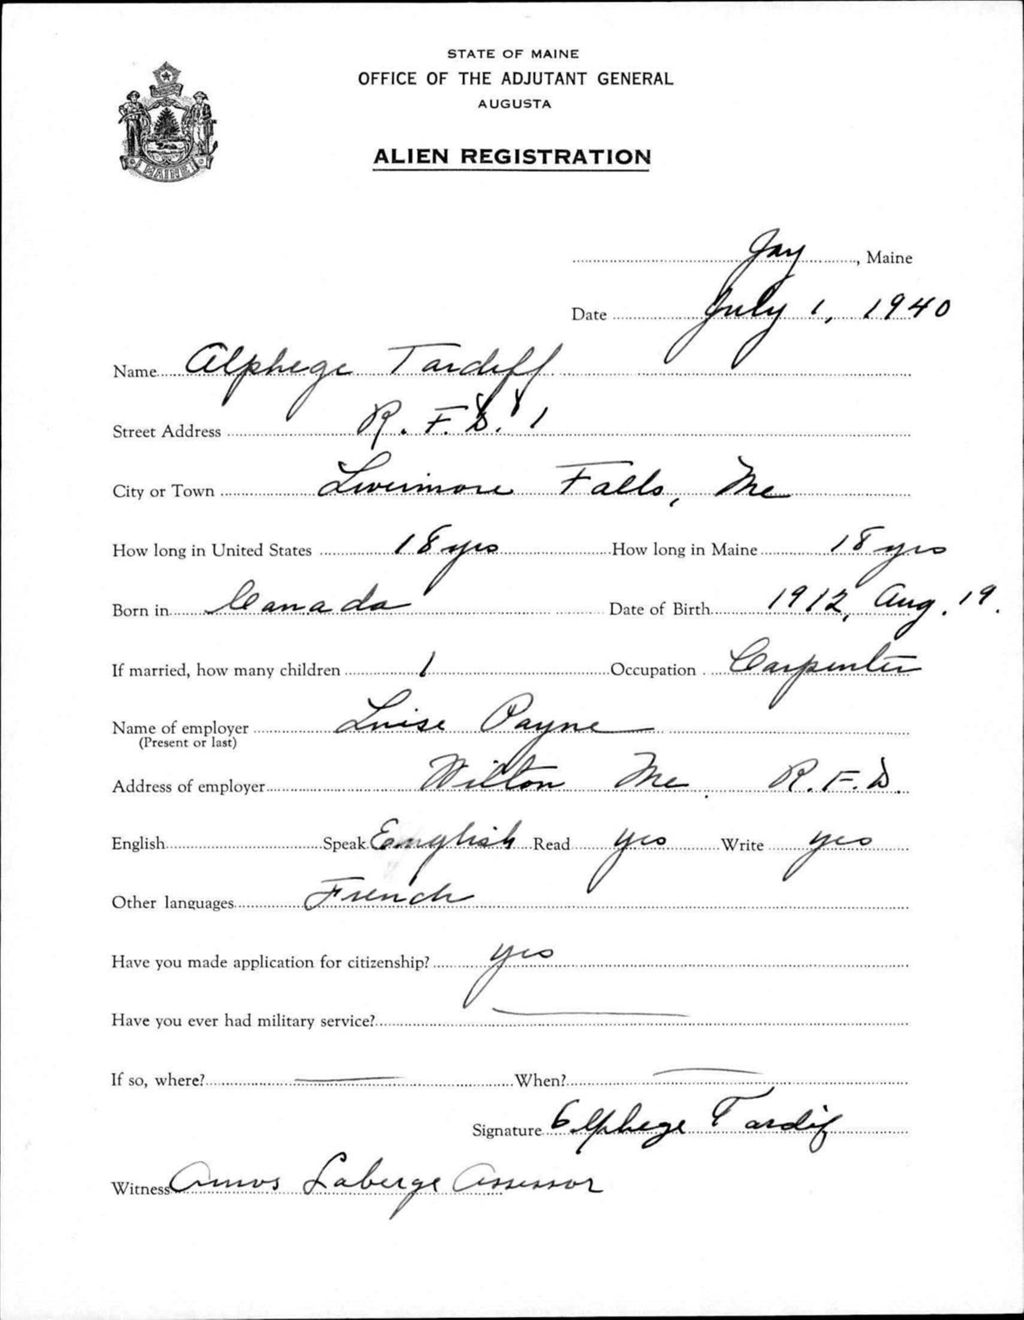 STATE OF MAINE
OFFICE OF THE ADJUTANT GENERAL
AUGUSTA
ALIEN REGISTRATION
MAINE
Jay, Maine
Date July 1, 1940
Name Alphege Tardiff
Street Address R. F. D. 1
City or Town Livermore Falls, Me
How long in United States 18 yrs How long in Maine 18 yrs
Born in Canada Date of Birth 1912, Aug. 19.
If married, how many children 1 Occupation Carpenter
Name of employer Luise Payne
(Present or last)
Address of employer Wilton Me. R. F. D.
English Speak English Read yes Write yes
Other languages French
Have you made application for citizenship? yes
Have you ever had military service? —
If so, where? — When? —
Signature Alphege Tardif
Witness Amos Laberge Assessor